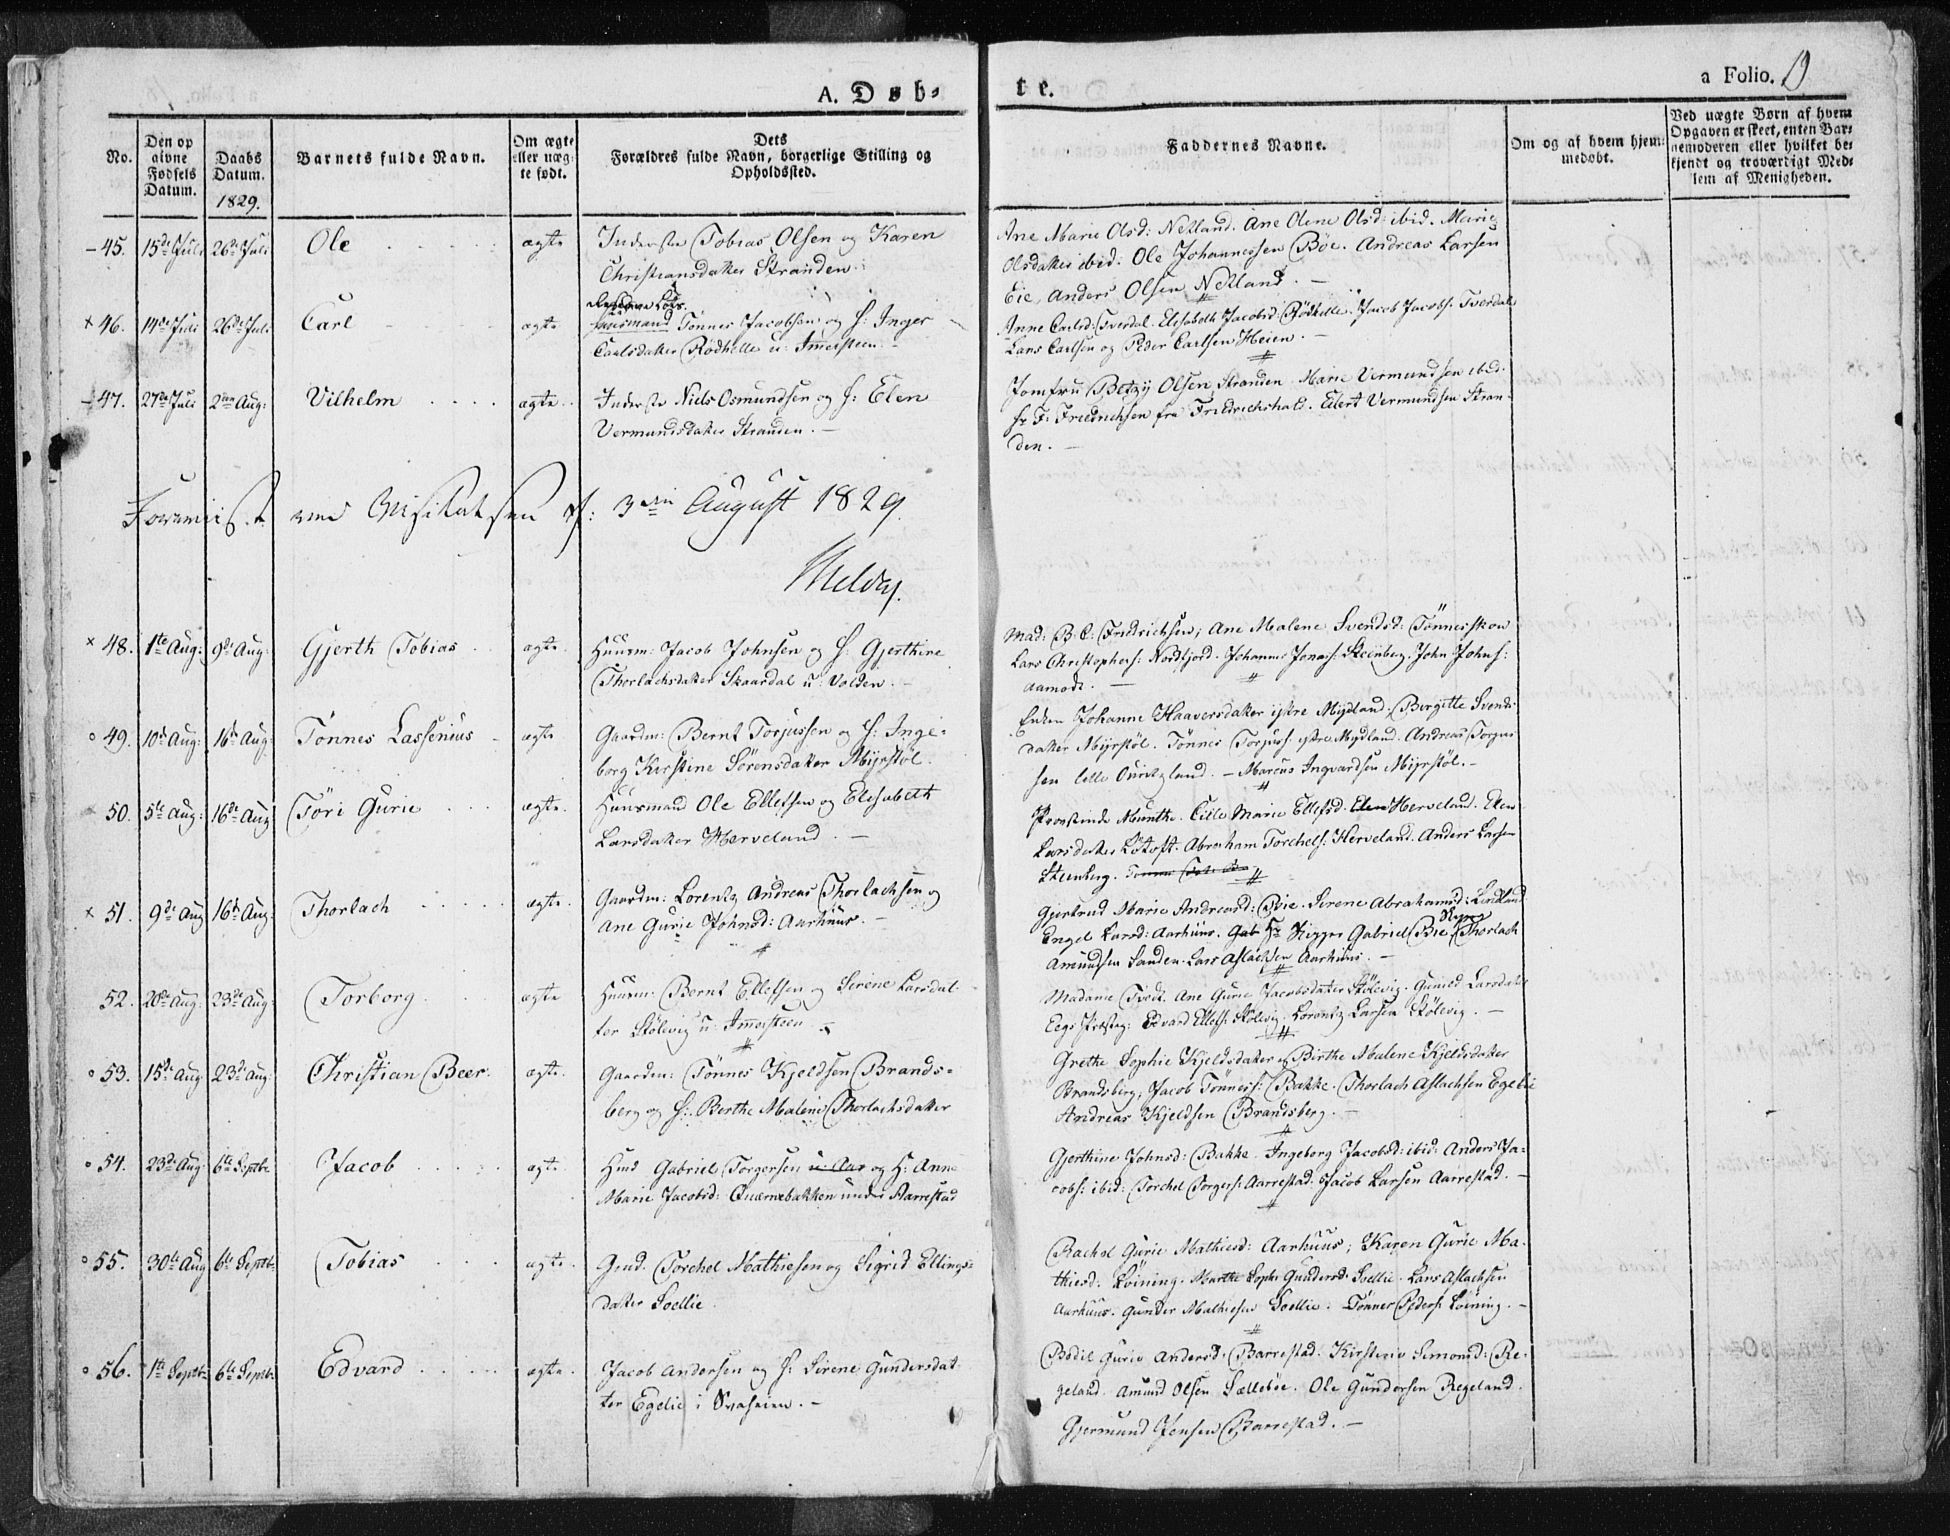 A. Døb-
te.
a Folio. 19
No.
Den op
givne
Fødsels
Datum.
Daabs
Datum.
1829.
Barnets fulde Navn.
Om ægte
eller uæg-
te født.
Dets
Forældres fulde Navn, borgerlige Stilling og
Opholdssted.
Faddernes Navne.
Om og af hvem hjem-
medøbt.
Ved uægte Børn af hvem
Opgaven er skeet, enten Bar-
nemoderen eller hvilket be-
kjendt og troværdigt Med-
lem af Menigheden.
45. 15de Juli 26de Juli Ole ægte Inderste Tobias Olsen og Karen
Christiansdatter Stranden.
Ane Marie Olsd: Netland. Ane Olene Olsd: ibid. Marie
Olsdatter ibid: Ole Johannessen Böe. Andreas Larsen
Eie, Anders Olsen Netland. —
× 46. 14de Juli 26de Juli Carl ægte
Huusmand Tönnes Jacobsen og H: Inger
Carlsdatter Rödhelle u: Immersteen. —
Anne Carlsd: Tverdal. Elisabeth Jacobsd: Rödhelle. Jacob Jacobs: Tverdal
Lars Carlsen og Peder Carlsen Heien. —
47. 27de Juli 2den Aug: Vilhelm ægte Inderste Niels Osmundsen og H: Elen
Vermundsdatter Stranden. —
Jomfru Betzy Olsen Stranden. Marie Vermundsen ibid.
Hr F: Friedrichsen fra Friedrichshald. Eilert Vermundsen Stran-
den. —
ved Visitatsen d: 3die August 1829.
× 48. 1te Aug: 9de Aug: Gjerth Tobias ægte Huusm: Jacob Johnsen og H: Gjerthine
Thorlachsdatter Skaardal u: Valden. —
Mad: B: C: Friedrichsen; Ane Malene Svendsd: Tönnesskow
Lars Christophers: Nordfjord. Johannes Jonas: Steenberg. John Johns:
Aamodt. —
° 49. 10de Aug: 16de Aug: Tönnes Lassenius ægte Gaardm: Bernt Torjussen og H: Inge-
borg Kirstine Sörensdatter Myrstöl.
Enken Johanne Haaversdatter ystre Mydland. Birgitte Svends-
datter Myrstöl. Tönnes Torjus: ystre Mydland. Andreas Torjus-
sen lille — Marcus Ingvardsen Myrstöl. —
50. 5te Aug: 16de Aug Töri Gurie ægte Huusmand Ole Ellefsen og Elisabeth
Larsdatter Herveland. —
Provstinde Munthe. Cille Marie Ellefsd. Herveland. Elen
Larsdatter Lötoft. Abraham Torchels: Herveland. Anders Larsen
Steenberg.
× 51. 9de Aug 16de Aug: Thorlach ægte Gaardm: Lorentz Andreas Thorlachsen og
Ane Gurie Johnsd: Aarhuus. —
Gjertrud Marie Andreasd: Eie. Sirene Abrahamsd: Lindland
Engel Larsd: Aarhuus. Gabriel Thorlach
Amundsen Sanden. Lars Aslachsen Aarhuus. —
52. 20de Aug: 23de Aug: Torborg ægte Huusm: Bernt Ellefsen og Sirene Larsdat-
ter Stölevig u: Immersteen.
Madame Tvedt. Ane Gurie Jacobsdatter Stölevig. Gunild Larsdatter
Eegs Edvard Ellefs: Stölevig. Lorentz Larsen Stölevig. —
° 53. 15de Aug: 23de Aug: Christian Beer. ægte. Gaardm: Tönnes Kjeldsen Brands-
berg og H: Berthe Malene Thorlachsdatter
Grethe Sophie Kjeldsdatter, Birthe Malene Kjeldsdatter
Brandsberg, Jacob Tönnes: Bakke. Thorlach Aslachsen Egelie
Andreas Kjeldsen Brandsberg. —
° 54. 23de Aug: 6te Septbr Jacob ægte Hmd Gabriel Torgersen u: Aar og H: Anne
Marie Jacobsd: Qværnebakken under Aarrestad
Gjerthine Johnsd: Bakke. Ingeborg Jacobsd: ibid: Anders Ja-
cobs: ibid: Torchel Torgers: Aarrestad. Jacob Larsen Aarrestad. —
° 55. 30te Aug 6te Septbr. Tobias ægte. Gmd. Torchel Mathiesen og Sigrid Ellings-
datter Soellie.
Rachel Gurie Mathiesd: Aarhuus; Karen Gurie Ma-
thiesd: Löining. Marthe Sophie Gundersd: Soellie. Lars Aslachsen
Aarhuus. Gunder Mathiesen Soellie: Tönnes Peders: Löining. —
° 56. 1te Septbr 6te Septbr. Edvard ægte. Jacob Andersen og H: Sirene Gundersdat-
ter Egelie i Svaheien. —
Bodil Gurie Andersd. Barrestad. Kirstine Simonsd: Re-
geland. Amund Olsen Sælleböe. Ole Gundersen Regeland.
Gjermund Jensen Barrestad. —